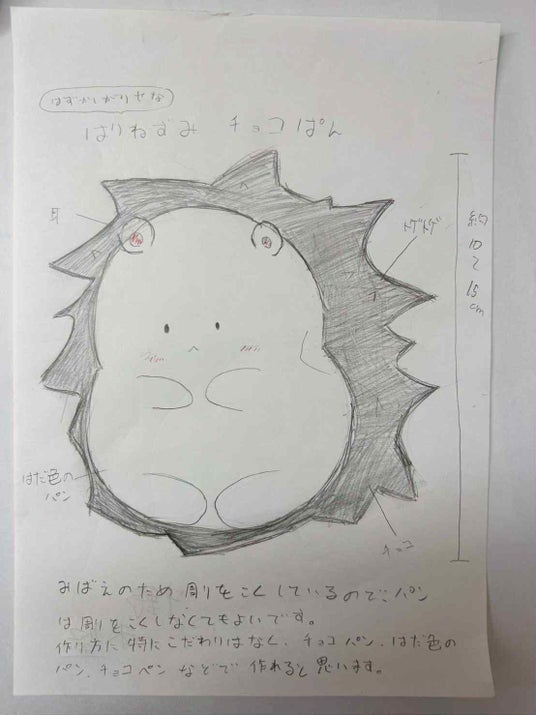 はずかしがりやな
はりねずみ チョコぱん
耳
トゲトゲ
約10〜15cm
はだ色の
パン
チョコ
みばえのため 彫をこくしているので、パン
は彫をこくしなくてもよいです。
作り方に特にこだわりはなく、チョコパン、はだ色の
パン、チョコペンなどで作れると思います。